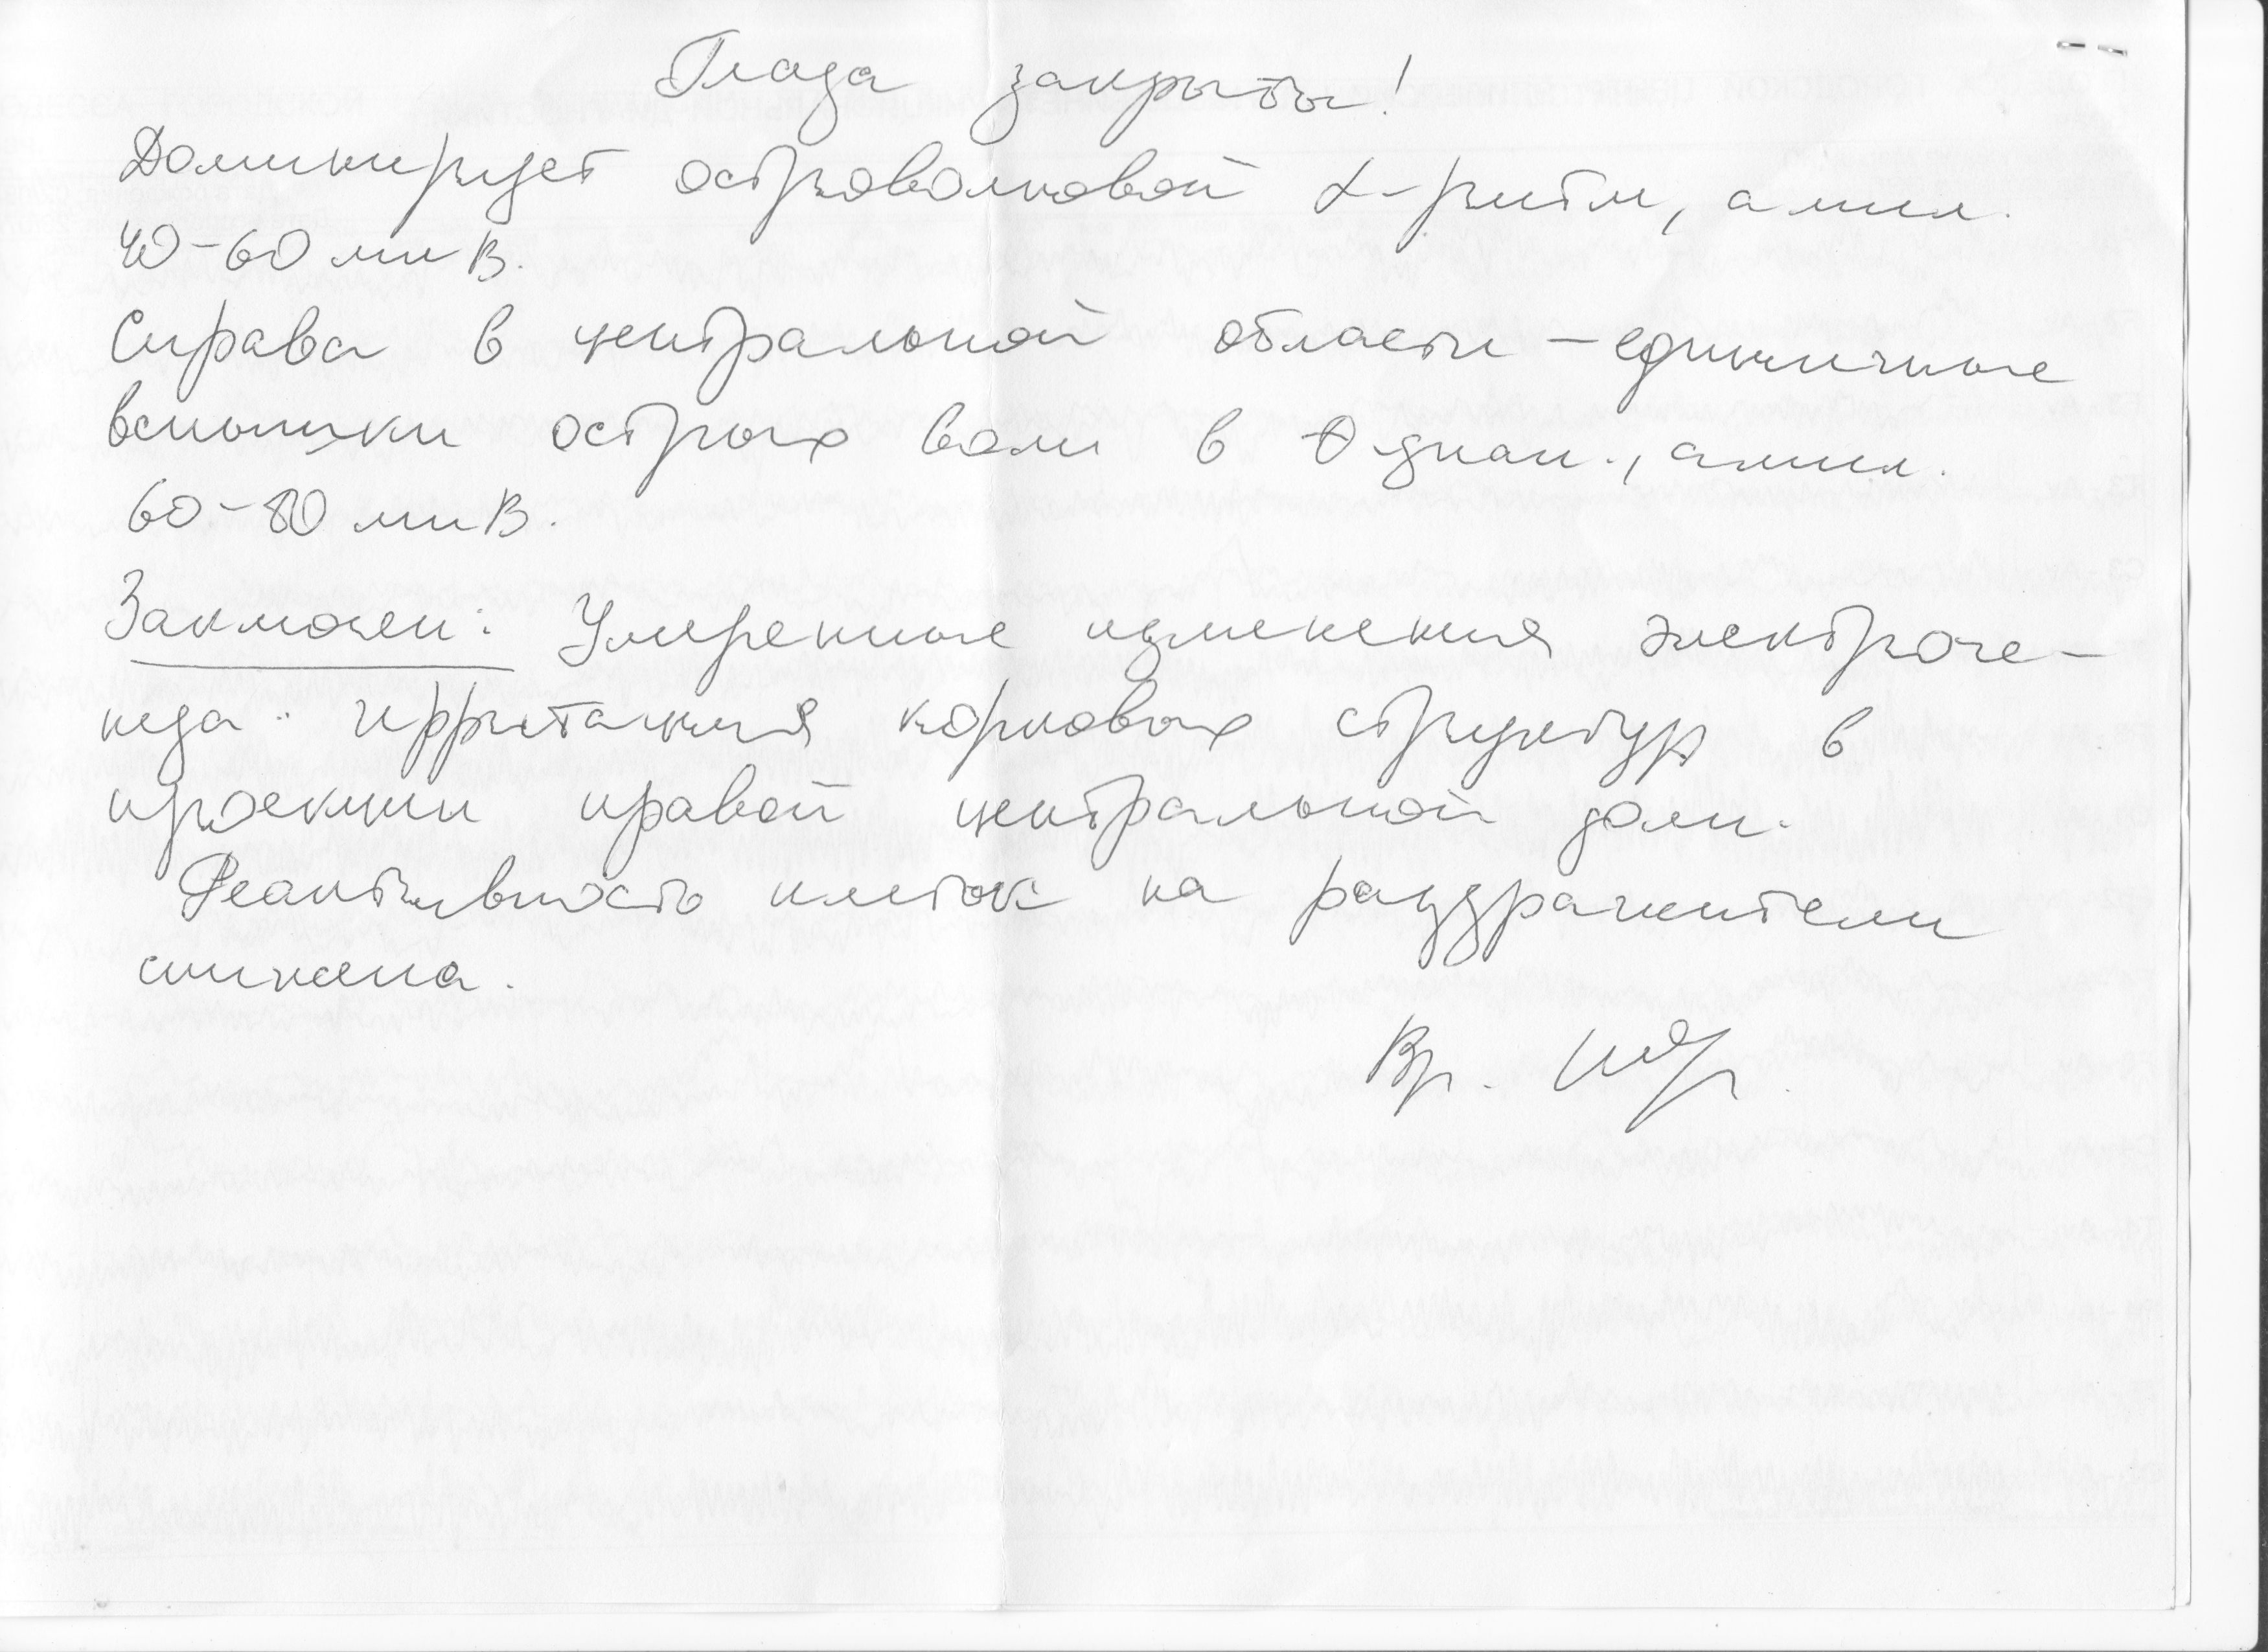 Глаза закрыты!
Доминирует островолновой α-ритм, ампл.
40-60 мкВ.
Справа в центральной области - единичные
вспышки острых волн в θ диап., ампл.
60-80 мкВ.
Заключен: Умеренные изменения электроге-
неза: ирритация корковых структур в
проекции правой центральной доли.
Реактивность клеток на раздражители
снижена.
Вр.